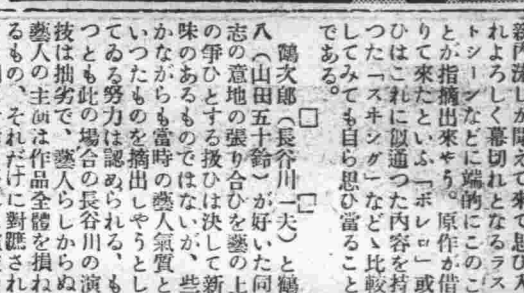 れよろしく幕切れとなるラス
トシーンなどに端的にこのこ
とが指摘出來やう。原作が借
りて來たといふ「ボレロ」或
ひはこれに似通つた内容を持
つた「スヰング」などゝ比較
してみても自ら思ひ當ること
である。
□　　□
鶴次郎（長谷川一夫）と鶴
八（山田五十鈴）が好いた同
志の意地の張り合ひを藝の上
の爭ひとする扱ひは決して新
味のあるものではないが、些
かながらも當時の藝人氣質と
いつたものを摘出しやうとし
てゐる努力は認められる、も
つとも此の場合の長谷川の演
技は拙劣で、藝人らしからぬ
藝人の主演は作品全體を損ね
るもの、それだけに對蹠され